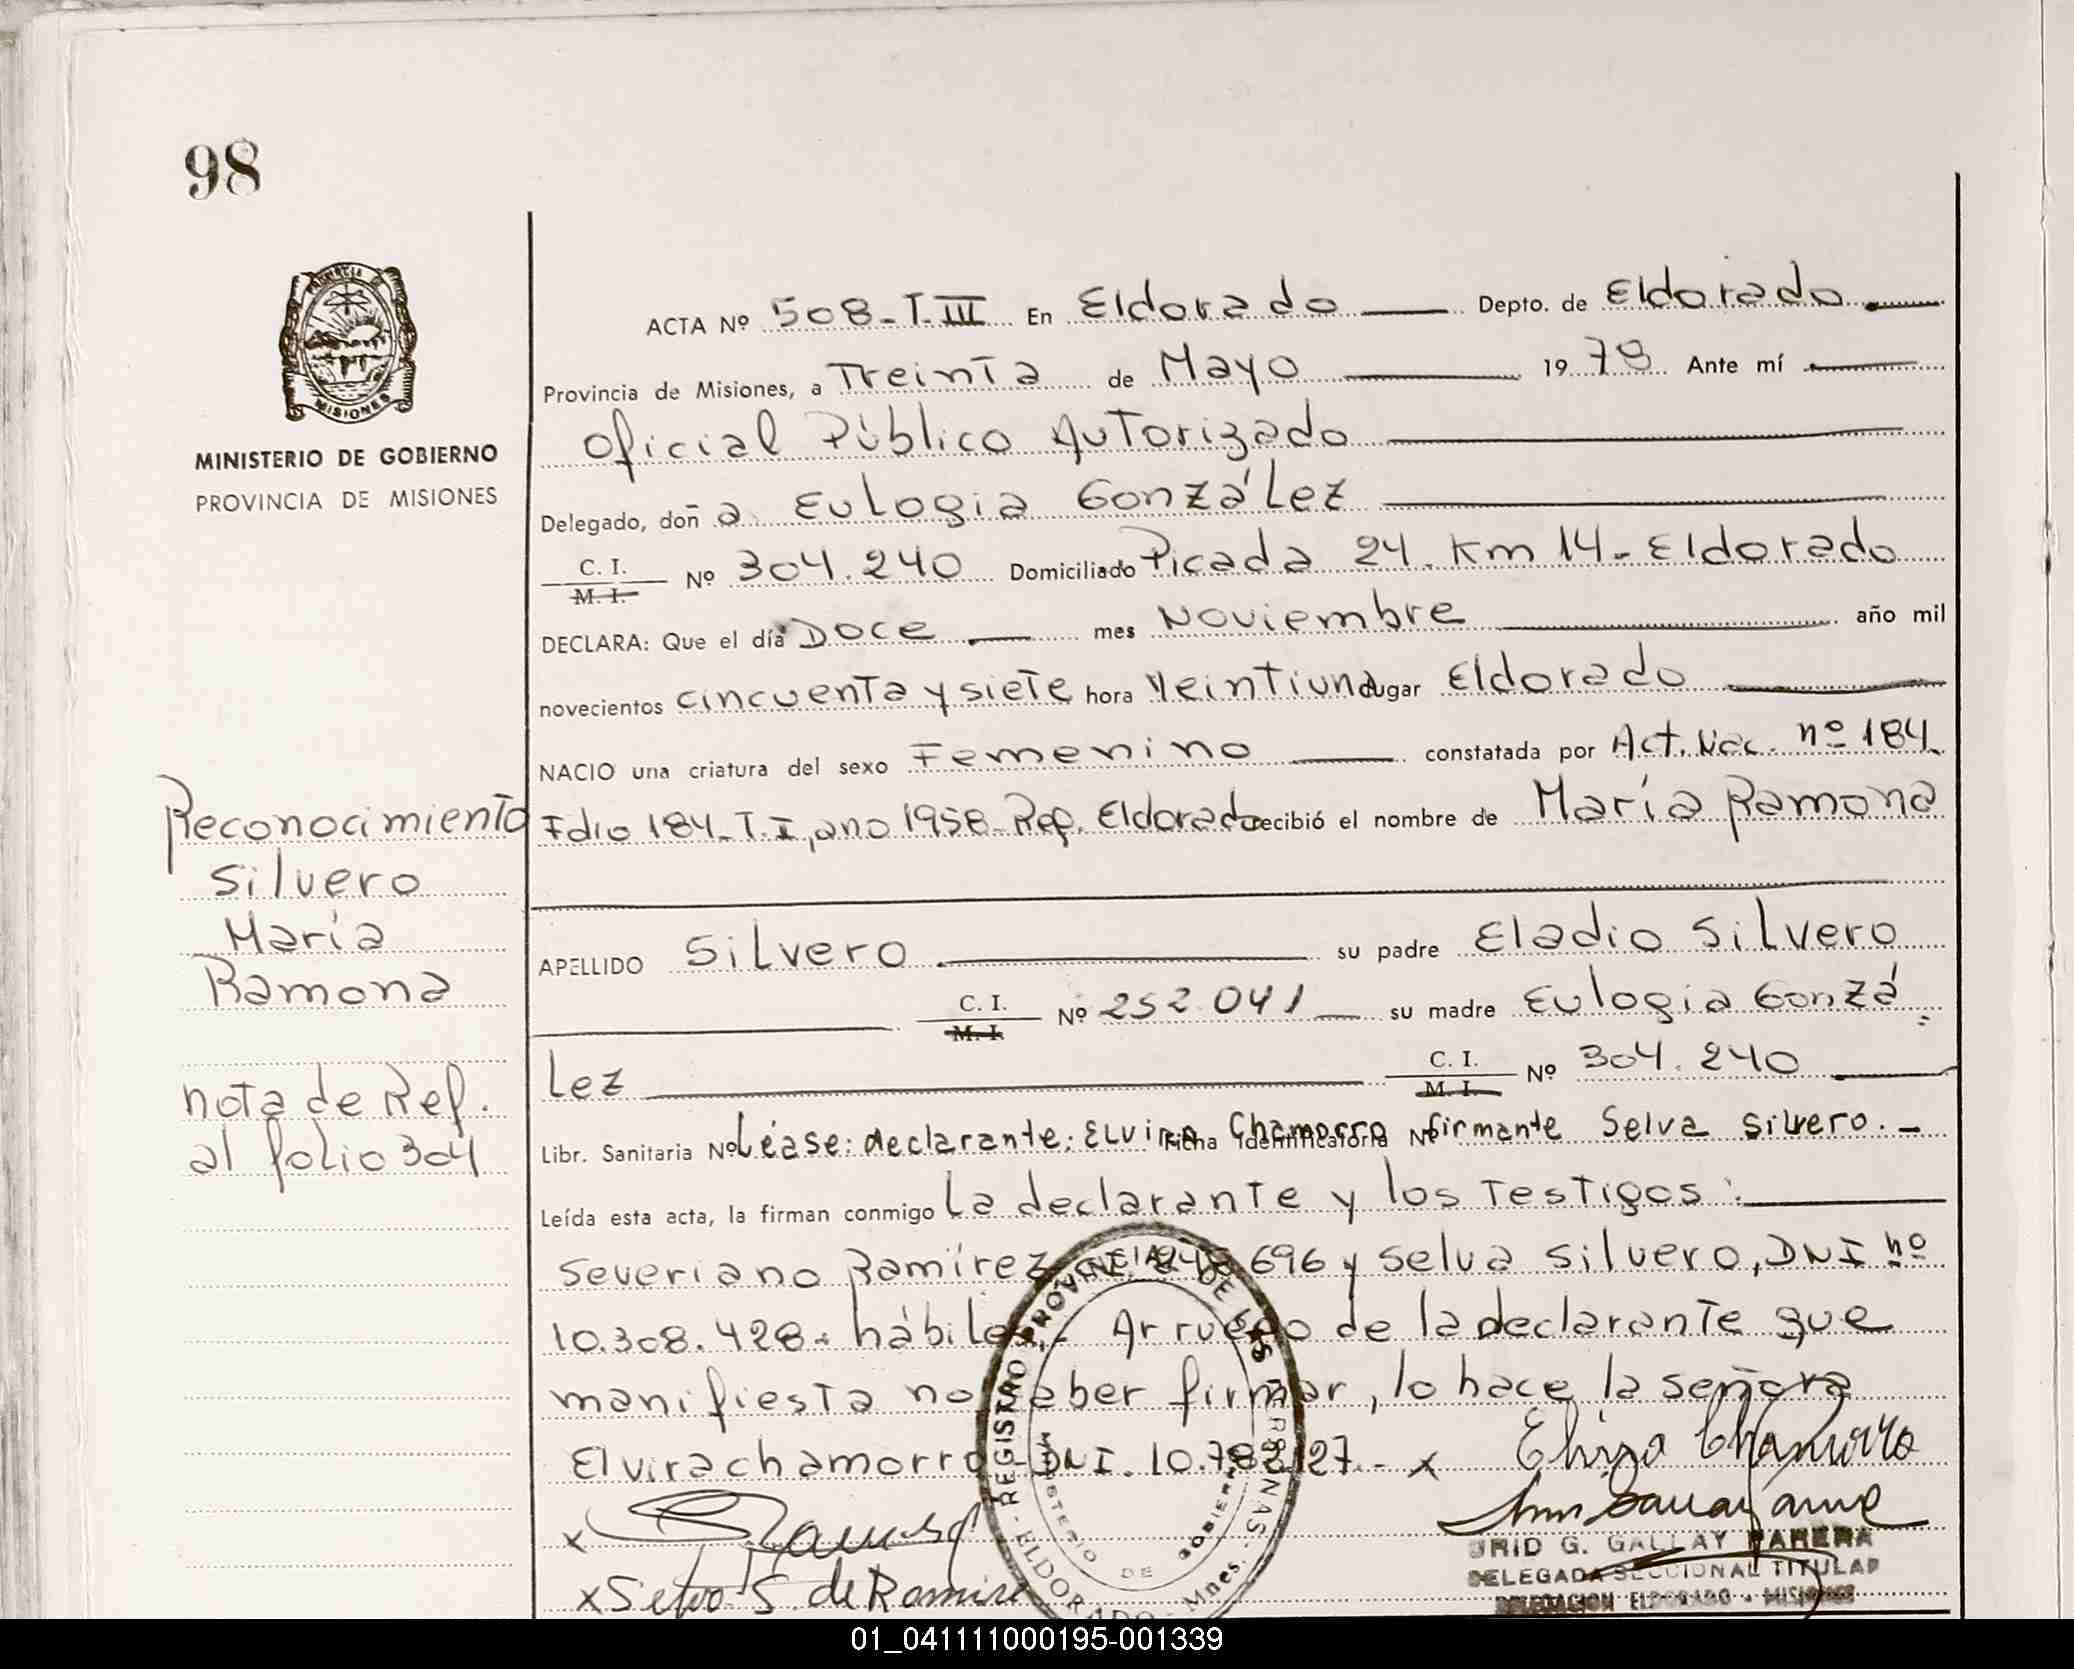 98
PROVINCIA
MISIONES
MINISTERIO DE GOBIERNO
PROVINCIA DE MISIONES
ACTA Nº 508-T.III En Eldorado Depto. de Eldorado
Provincia de Misiones, a Treinta de Mayo 1978 Ante mí
Oficial Público Autorizado
Delegado, doña Eulogia González
C. I. M. I. Nº 304.240 Domiciliado Picada 24. Km 14- Eldorado
DECLARA: Que el día Doce mes Noviembre año mil
novecientos cincuenta y siete hora Veintiuna lugar Eldorado
NACIO una criatura del sexo Femenino constatada por Act. Nac. nº 184
Fdio 184- T.I, ano 1958- Rep. Eldorado recibió el nombre de María Ramona
APELLIDO Silvero su padre Eladio Silvero
C. I. M. I. Nº 252.041 su madre Eulogia Gonzá
lez C. I. M. I. Nº 304.240
Libr. Sanitaria Nº Léase: declarante: Elvira Chamorro Ficha Identificatoria Nº firmante Selva Silvero.-
Leída esta acta, la firman conmigo la declarante y los Testigos:
Severiano Ramírez 696 y Selva Silvero, DNI nº
10.308.428- hábiles- A ruego de la declarante que
manifiesta no saber firmar, lo hace la señora
Elvira chamorro DNI. 10.78 127.- x Elvira Chamorro
x
x Selva S. de Ramire
Reconocimiento
Silvero
María
Ramona
nota de Ref.
al folio 304
REGISTRO PROVINCIAL DE LAS PERSONAS - ELDORADO - Mnes.
MINISTERIO DE GOBIERNO
G. GALLAY PARERA
DELEGADA SECCIONAL TITULAR
DELEGACION ELDORADO - MISIONES
01_041111000195-001339